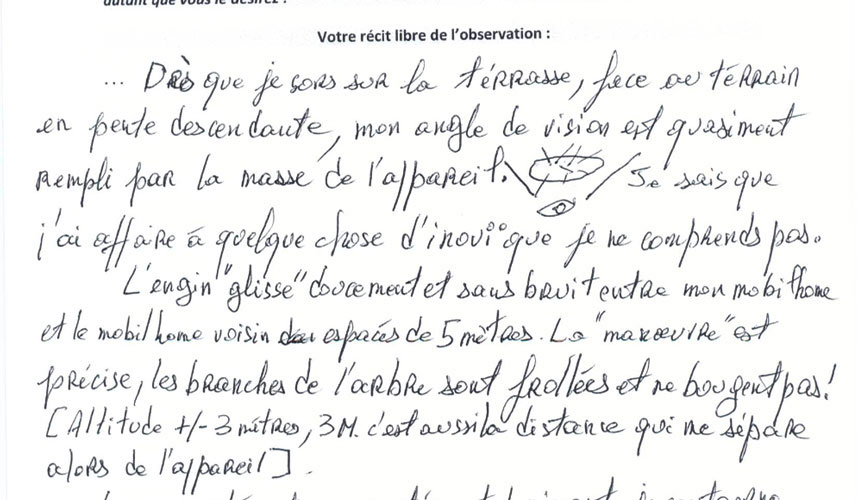 autant que vous le désirez :
Votre récit libre de l'observation :
... Dès que je sors sur la térrasse, face au térrain
en pente descendante, mon angle de vision est quasiment
rempli par la masse de l'appareil. Je sais que
j'ai affaire à quelque chose d'inouï que je ne comprends pas.
L'engin "glisse" doucement et sans bruit entre mon mobilhome
et le mobilhome voisin espacés de 5 mètres. La "manœuvre" est
précise, les branches de l'arbre sont frollées et ne bougent pas!
[Altitude +/- 3 mètres, 3 M. c'est aussi la distance qui me sépare
alors de l'appareil].